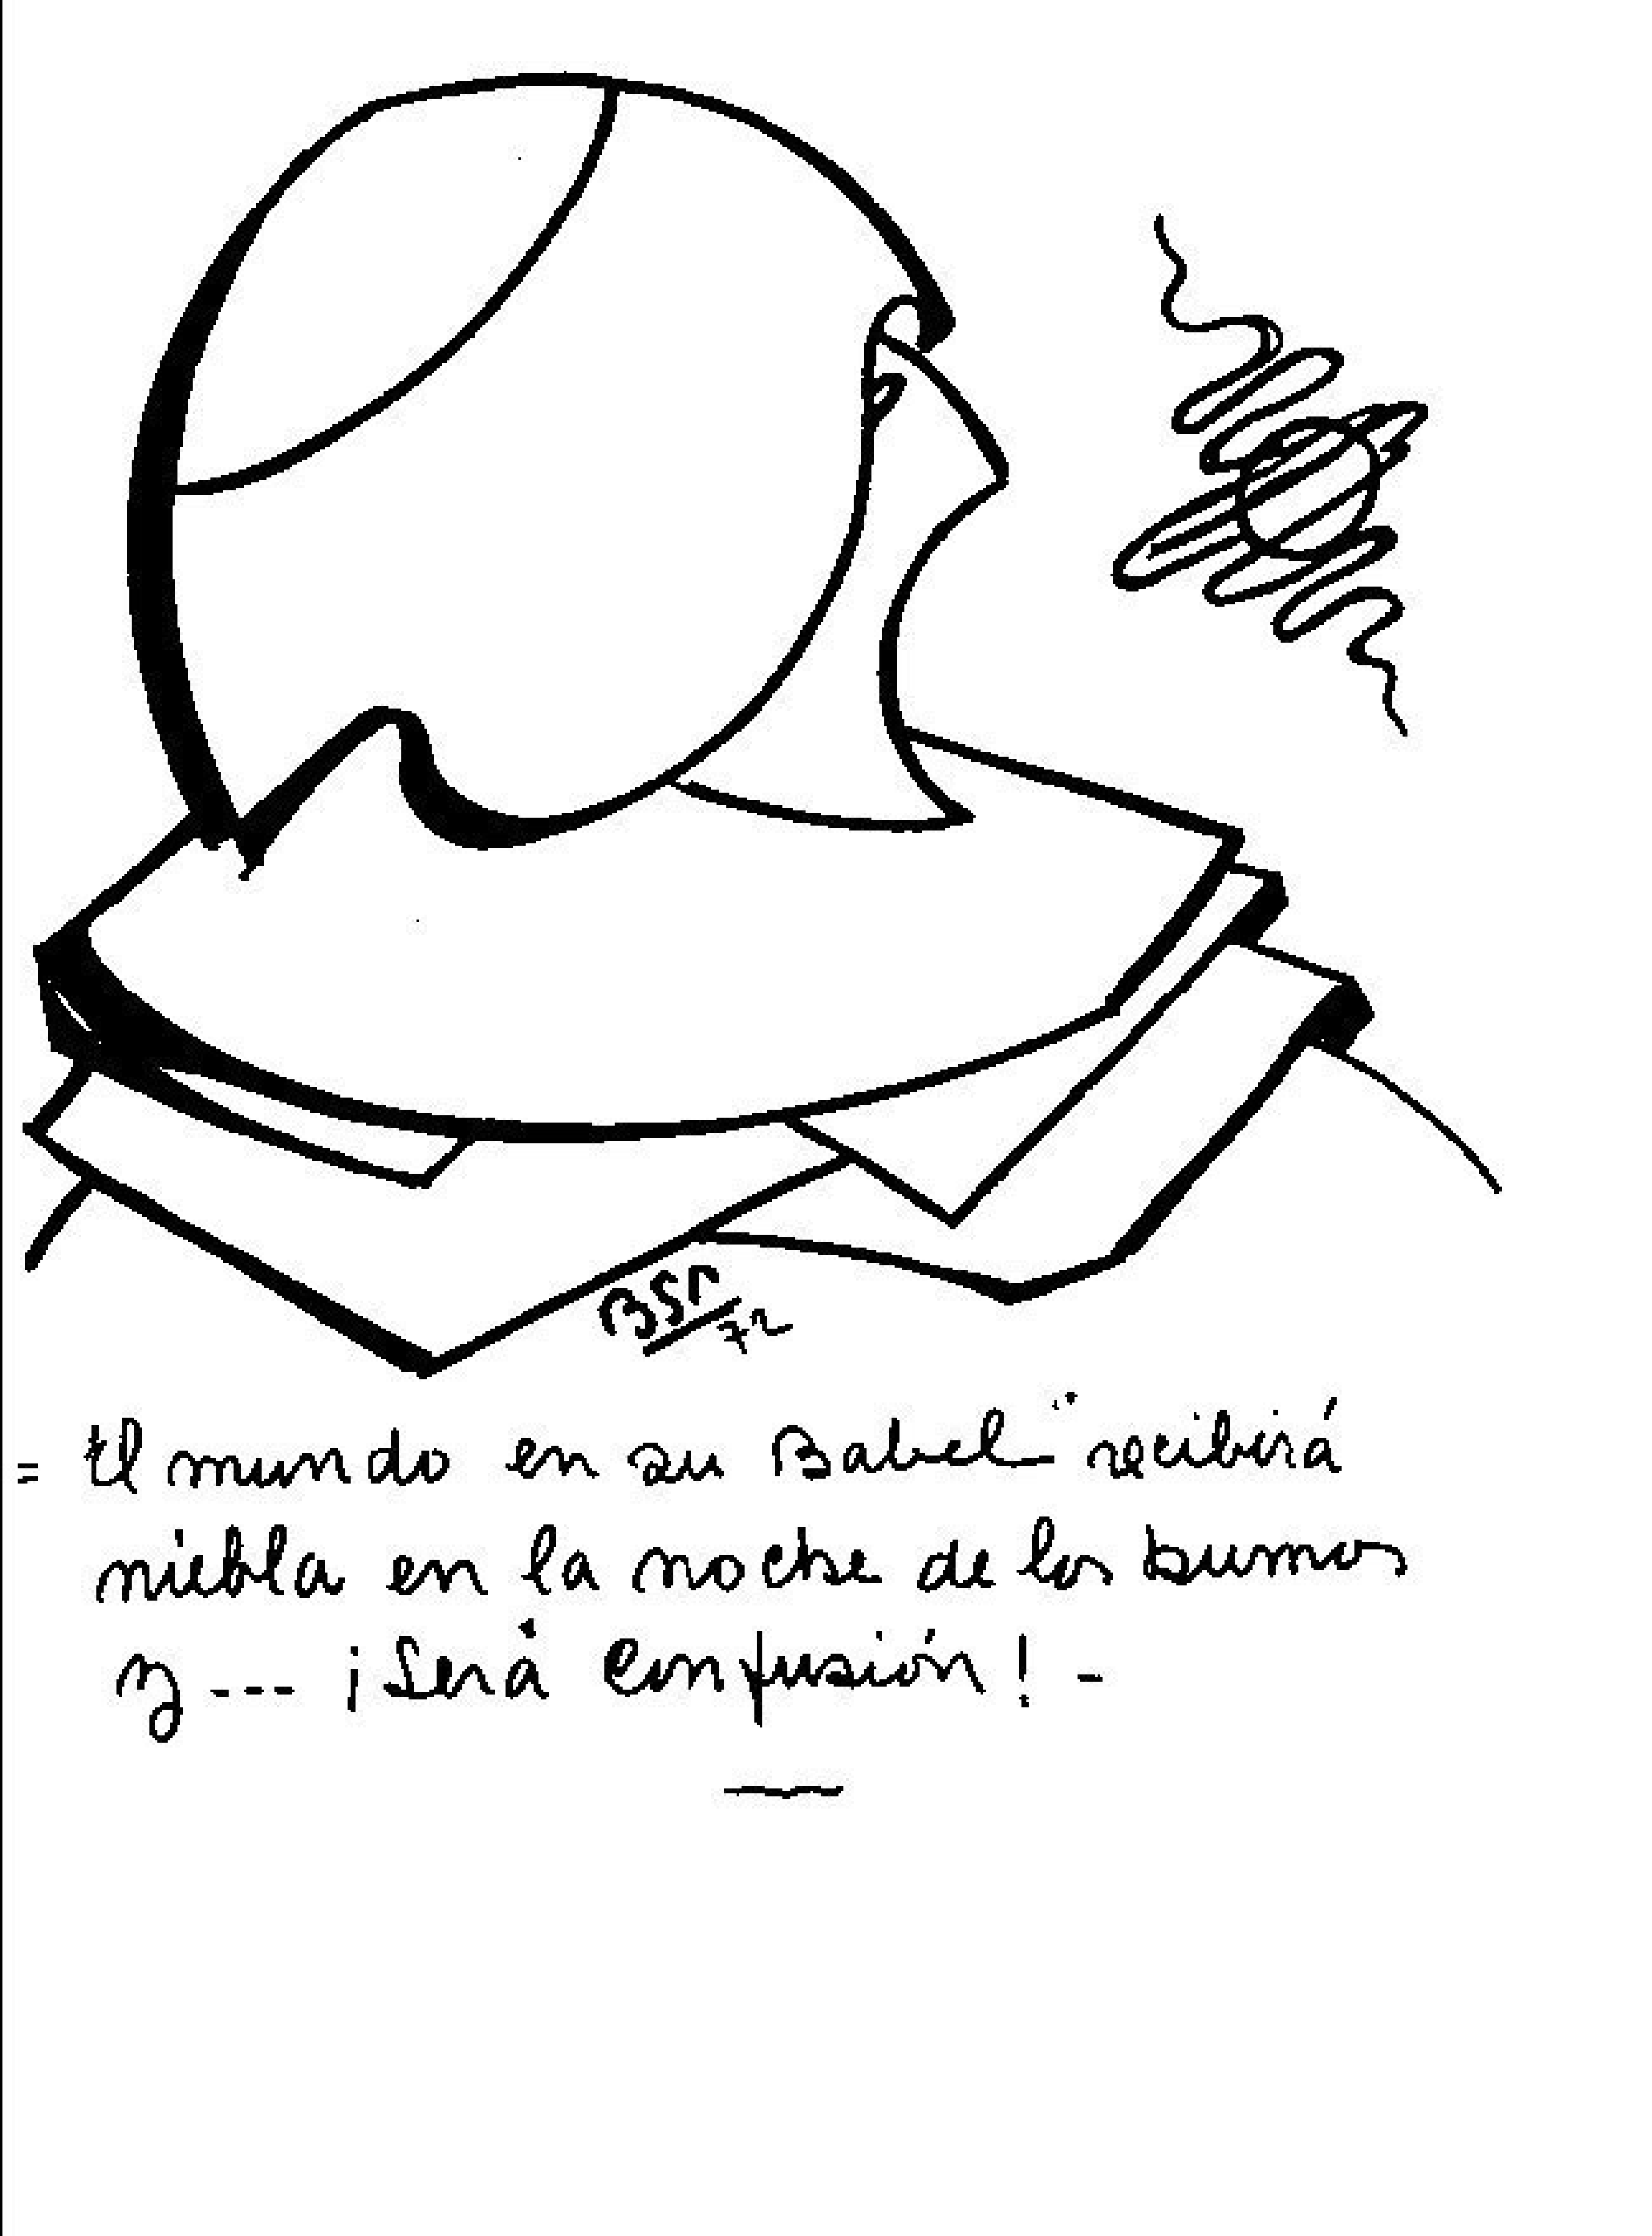 BSP
72
= El mundo en su Babel recibirá
niebla en la noche de los humos
y --- ¡Será confusión! -